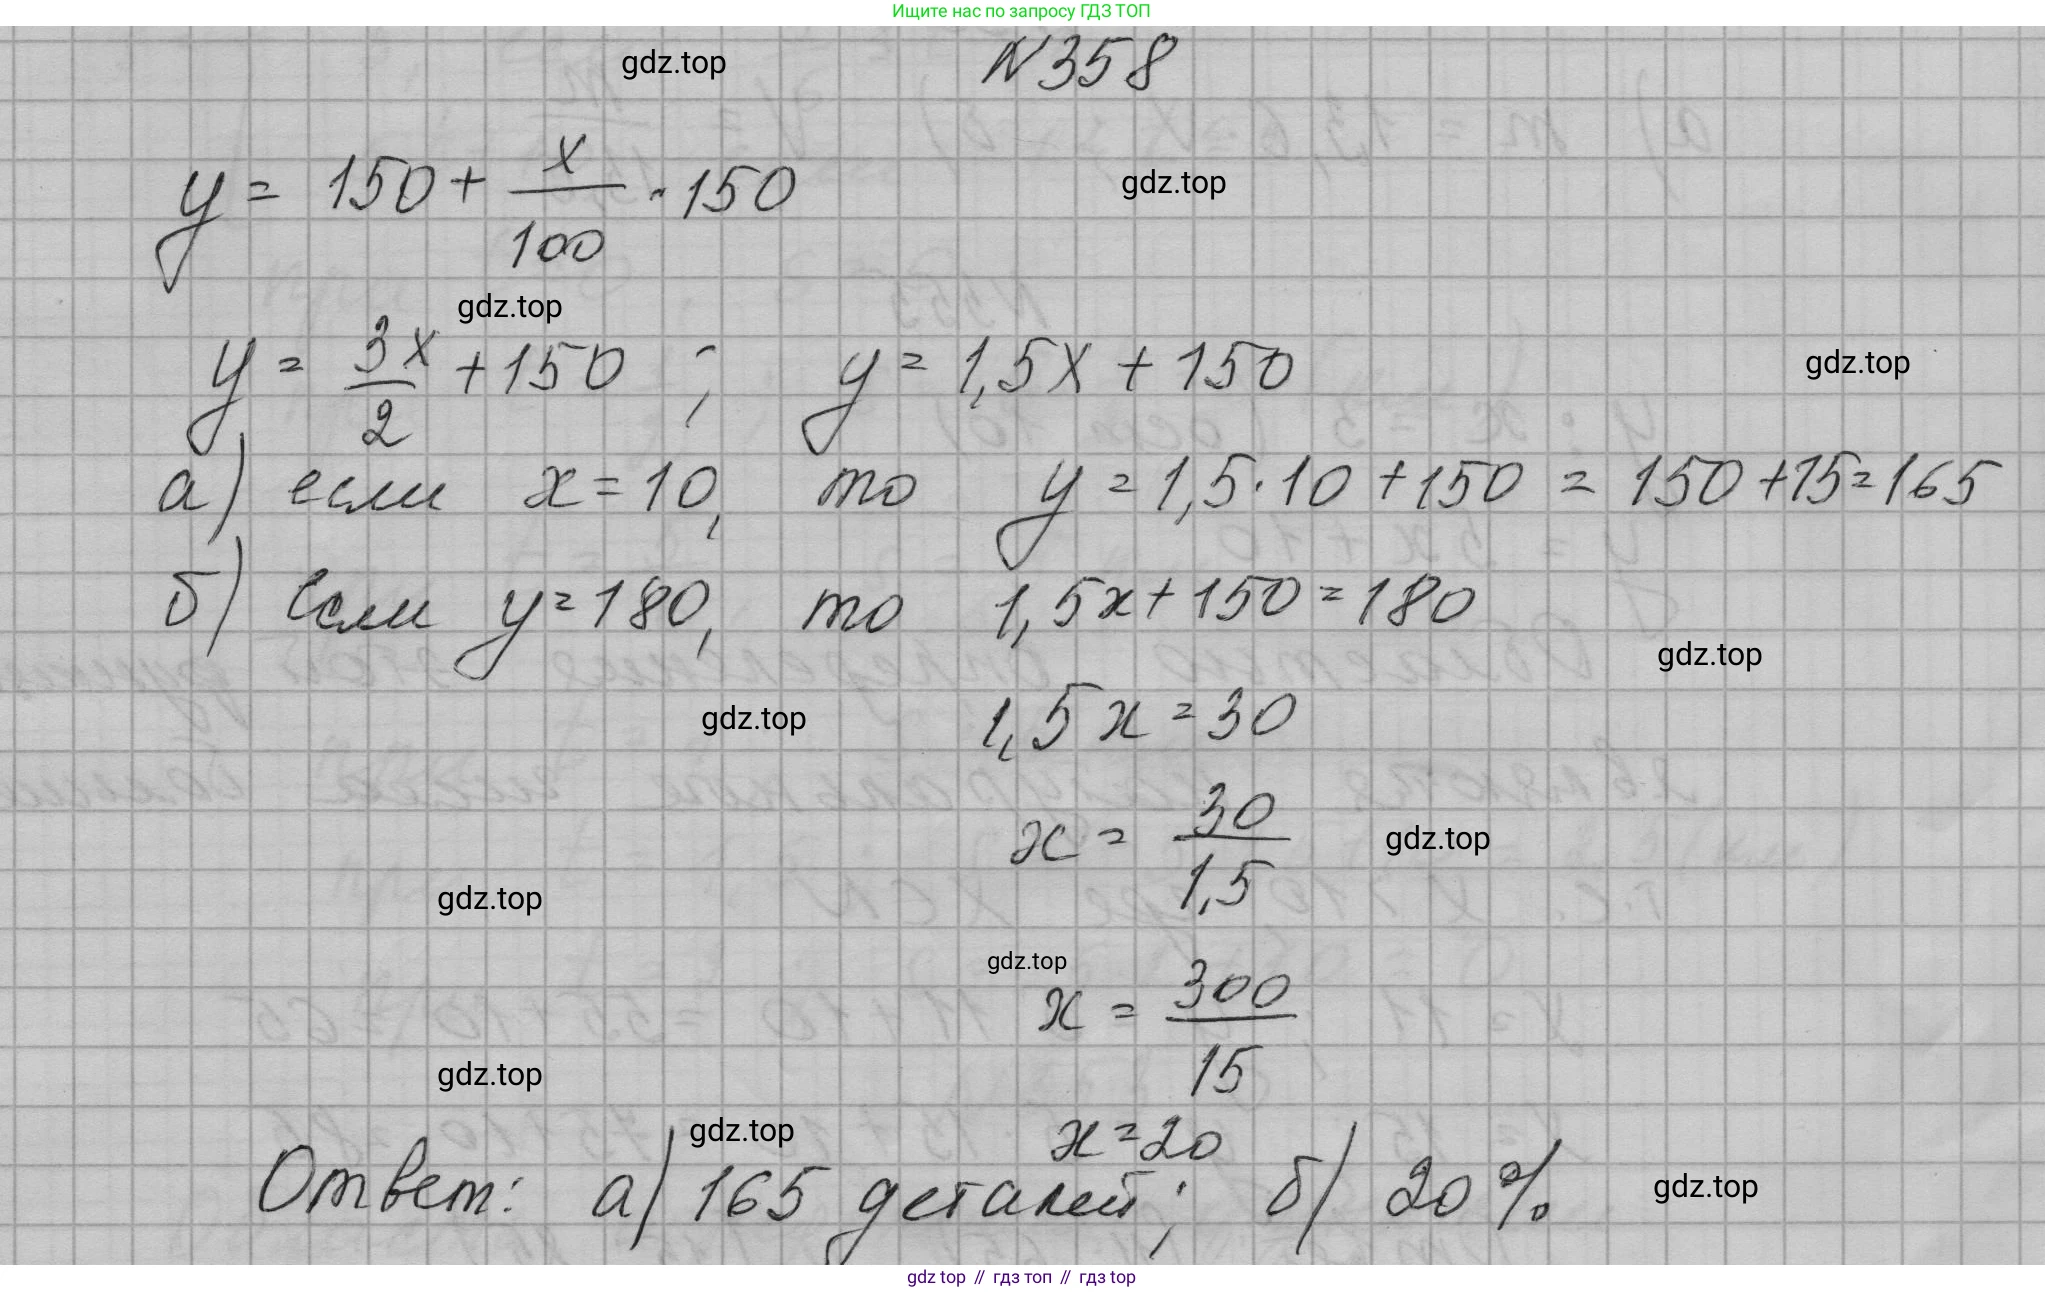 Ищите нас по запросу ГДЗ ТОП
gdz.top
N358
y = 150 + x/100 · 150
gdz.top
gdz.top
y = 3x/2 + 150 ; y = 1,5x + 150
gdz.top
а) если x = 10, то y = 1,5 · 10 + 150 = 150 + 15 = 165
б) Если y = 180, то 1,5x + 150 = 180
gdz.top
1,5x = 30
gdz.top
x = 30/1,5
gdz.top
gdz.top
gdz.top
x = 300/15
gdz.top
gdz.top
x = 20
Ответ: а) 165 деталей; б) 20%
gdz.top
gdz top // гдз топ // gdz top